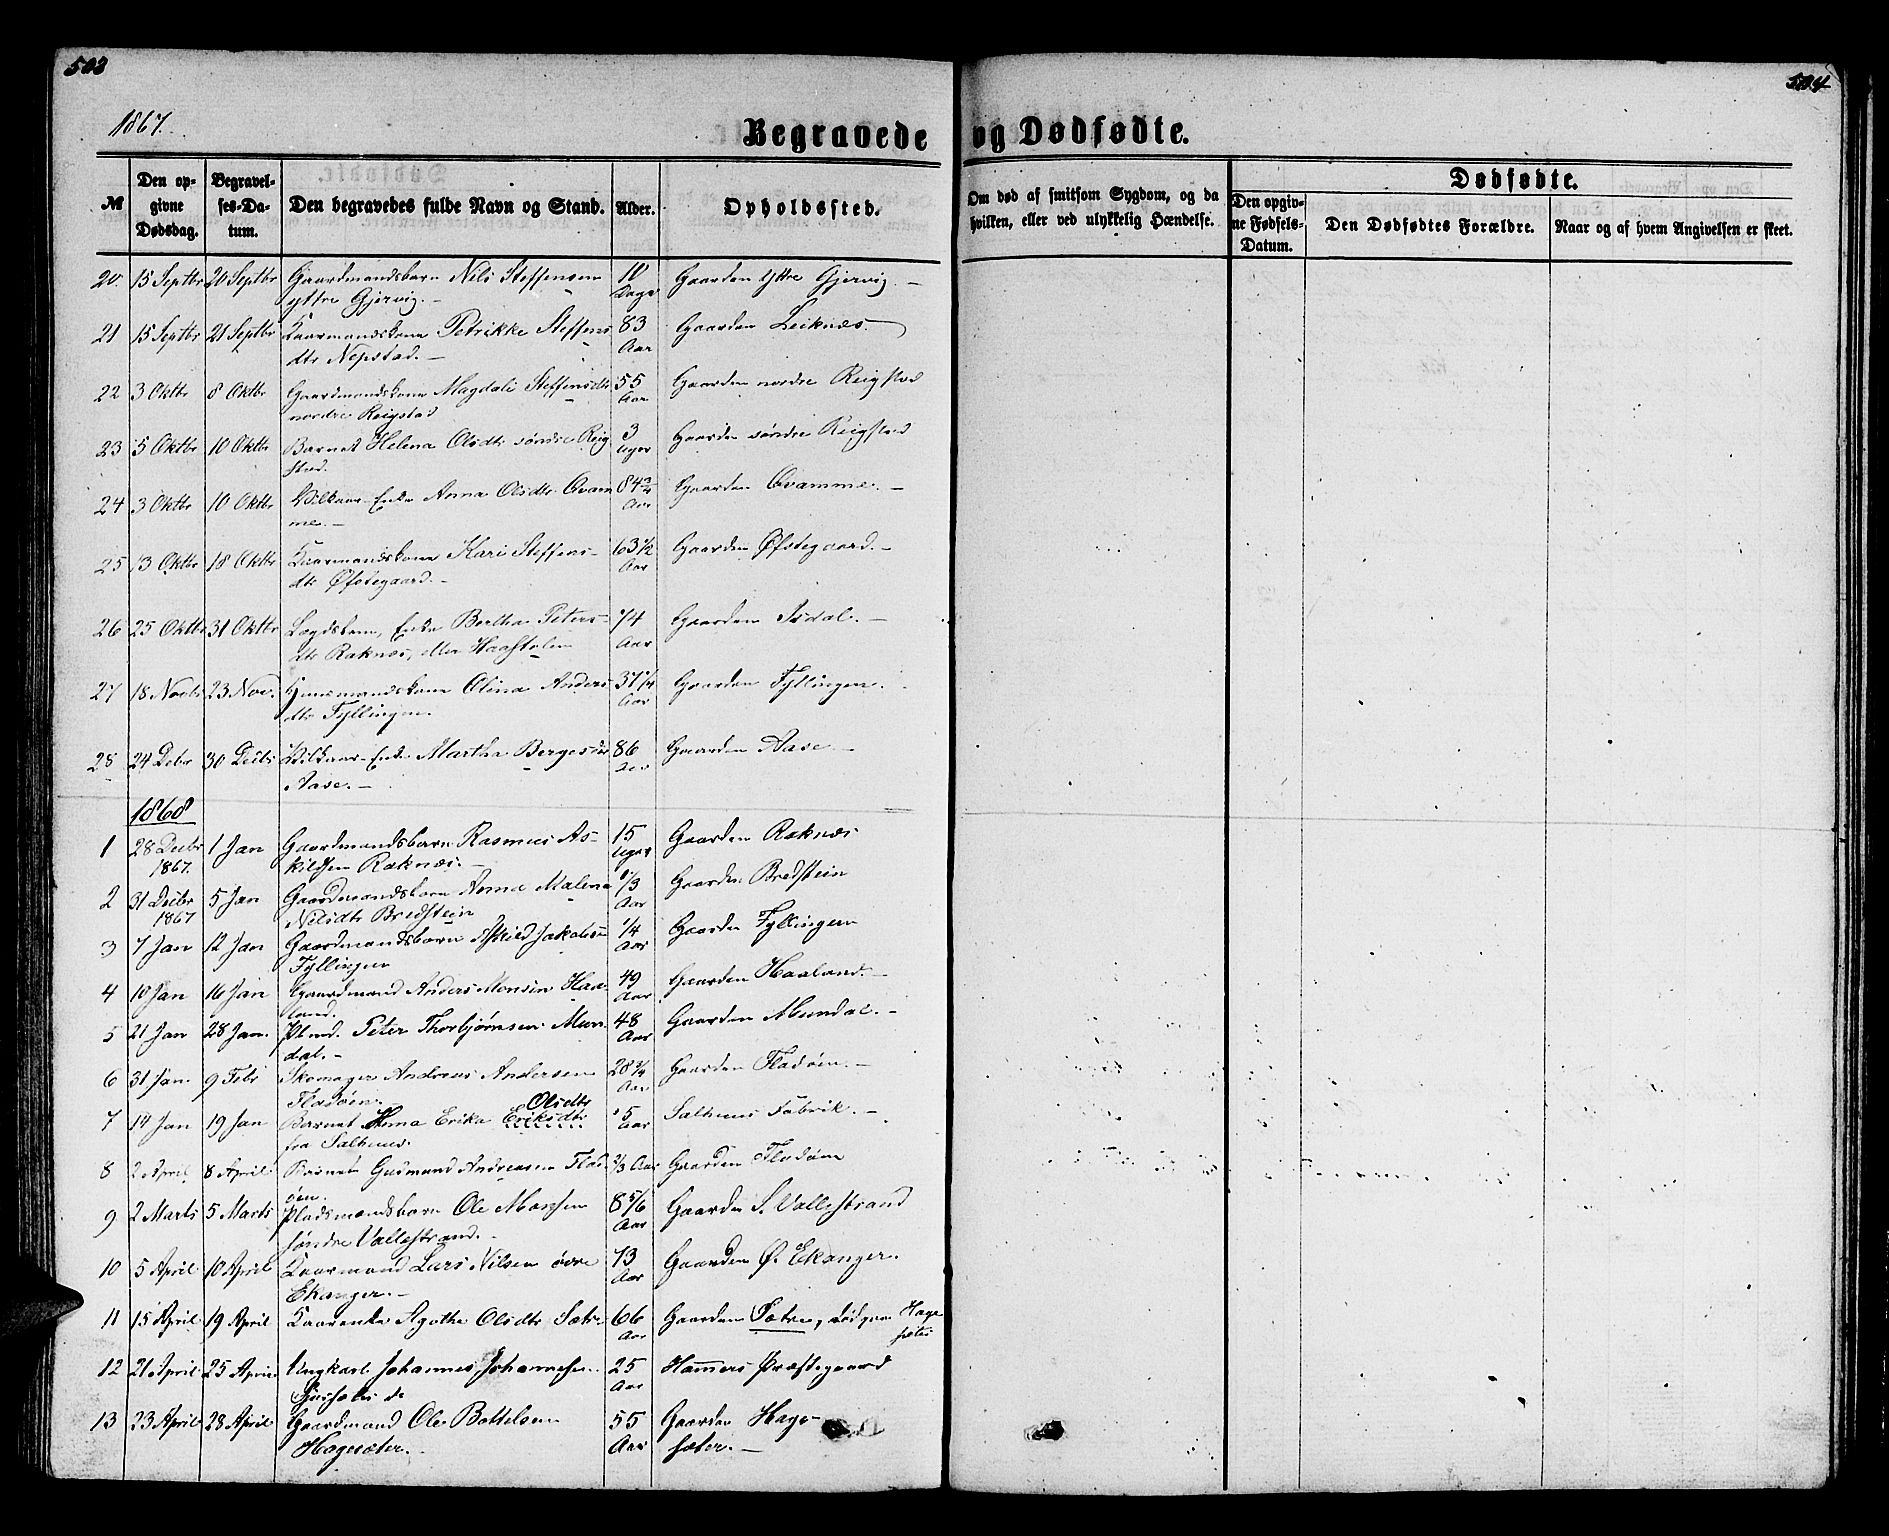 503
504
1867.
Begravede og Dødfødte.
№
Den opgivne Dødsdag.
Begravelses-Datum.
Den begravedes fulde Navn og Stand.
Alder.
Opholdssted.
Om død af smitsom Sygdom, og da hvilken, eller ved ulykkelig Hændelse.
Dødfødte.
Den opgivne Fødsels-Datum.
Den Dødfødtes Forældre.
Naar og af hvem Angivelsen er skeet.
20. 15 Septbr 20 Septbr Gaardmandsbarn Nils Steffensen Dage Gaarden Yttre Gjervig. —
yttre Gjervig. —
21 15 Septbr 21 Septbr Kaarmandskone Petrikke Steffens 83 Aar Gaarden Leiknæs.
dtr Nepstad. —
22 3 Oktbr 8 Oktbr Gaardmandskone Magdali Steffensdtr 55 Aar Gaarden nordre Reigstad
nordre Reigstad
23 5 Oktbr 10 Oktbr Barnet Helena Olsdtr søndre Reig 3 Uger Gaarden søndre Reigstad
stad.
24 3 Oktbr 10 Oktbr Vilkaar-Enke Anna Olsdtr Qvam 84 3/4 Aar Gaarden Qvamme. —
me. —
25 13 Oktbr 18 Oktbr Kaarmandskone Kari Steffens- 63 1/2 Aar Gaarden Øfstegaard. —
dtr Øfstegaard. —
26 25 Oktbr 31 Oktbr Lægdslem, Enke Bertha Peters- 74 Aar Gaarden Isdal. —
dtr Raknæs, eller Haastolen
27 18 Novbr 23 Nov. Huusmandskone Olina Anders 37 1/4 Aar Gaarden Fyllingen.
dtr Fyllingen.
28 24 Debr 30 Decbr Vilkaar-Enke Martha Bergesdtr 86 Aar Gaarden Aase. —
Aase. —
1868
1 28 Decbr 1867. 1 Jan Gaardmandsbarn Rasmus As- 15 Uger Gaarden Raknæs
kildsen Raknæs. —
2 31 Decbr 1867 5 Jan Gaardmandsbarn Anna Malena 1/3 Aar Gaarden Bredstein
Nilsdtr Bredstein
3 7 Jan 12 Jan Gaardmandsbarn Askild Jakobsen 1/4 Aar Gaarden Fyllingen
Fyllingen
4 10 Jan 16 Jan Gaardmand Anders Monsen Haa- 49 Aar Gaarden Haaland. —
land.
5 21 Jan 28 Jan. Plmd. Peter Thorbjørnsen Mun 48 Aar Gaarden Mundal. —
dal. —
6 31 Jan. 9 Febr Skomager Andreas Andersen 28 3/4 Aar Gaarden Fladøen. —
Fladøen. —
Olsdtr
7 14 Jan 19 Jan Barnet Anna Erika Eriksdtr 5 Aar Salhuus Fabrik. —
fra Salhuus.
8 2 April 8 April Barnet Gudmund Andreasen Flad- 2/3 Aar Gaarden Fladøen
øen.
9 2 Marts 5 Marts Pladsmandsbarn Ole Monsen 8 5/6 Aar Gaarden S. Vallestrand
søndre Vallestrand. —
10 5 April 10 April Kaarmand Lars Nilsen øvre 73 Aar Gaarden Ø. Ekanger.
Ekanger. —
11 15 April 19 April Kaarenke Agathe Olsdtr Sætre 66 Aar Gaarden Sætre, død paa Hage
sæter
12 21 April 25 April Ungkarl Johannes Johannesen 25 Aar Hammers Præstegaard
13 23 April 28 April Gaardmand Ole Bottelsen 55 Aar Gaarden Hage-
Hagesæter. sæter. —